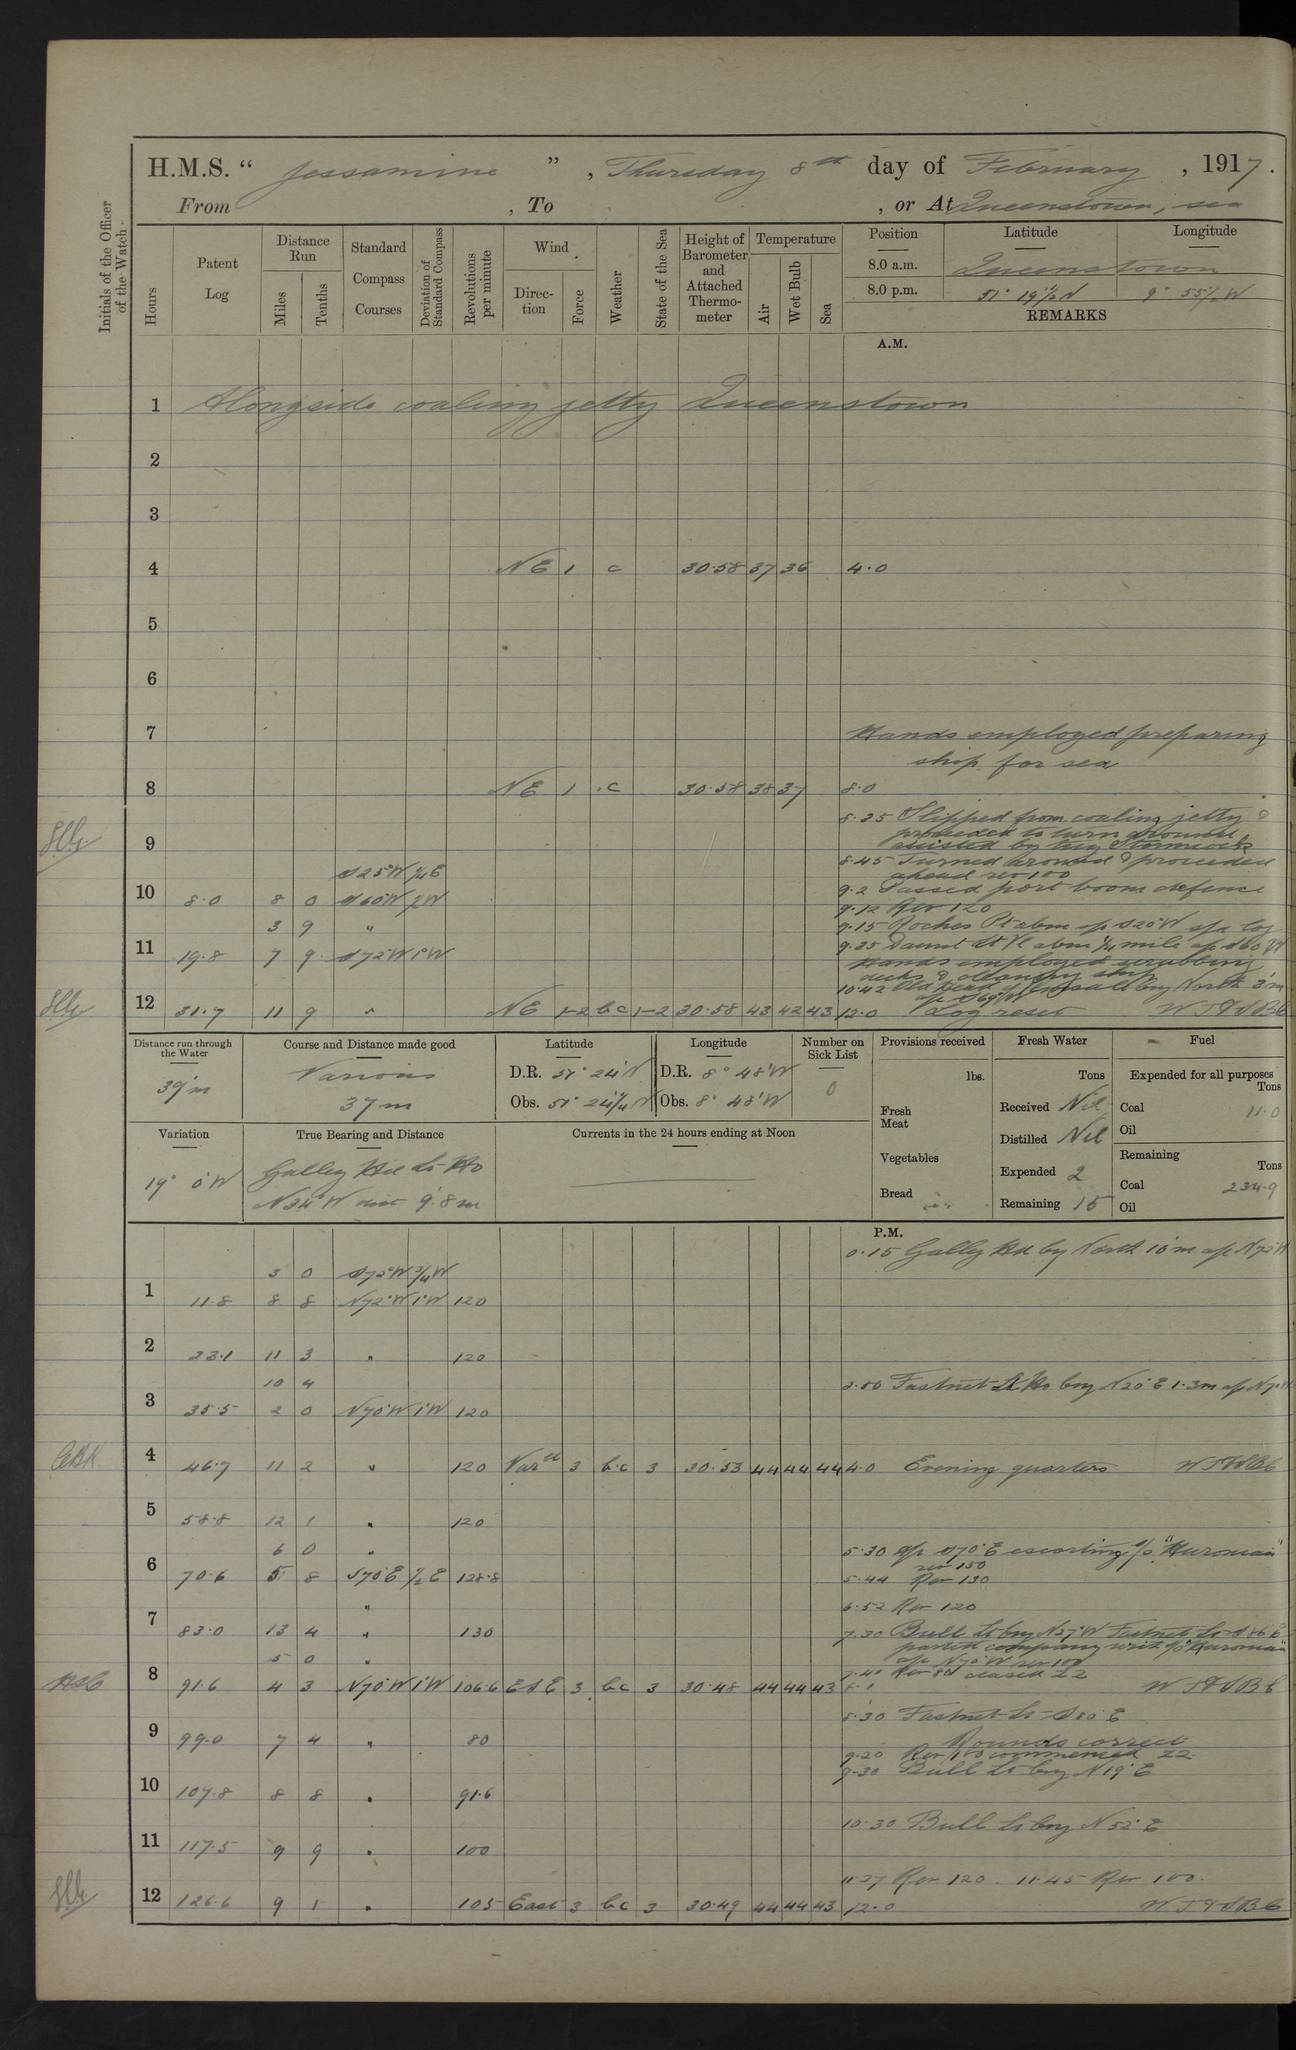 H.M.S. “ Jessamine ”, Thursday 8th day of February, 1917.
From , To , or At Queenstown, sea
Initials of the Officer of the Watch
Hours
Patent Log
Distance Run
Miles
Tenths
Standard Compass Courses
Deviation of Standard Compass
Revolutions per minute
Wind
Direction
Force
Weather
State of the Sea
Height of Barometer and Attached Thermometer
Temperature
Air
Wet Bulb
Sea
Position Latitude Longitude
8.0 a.m. Queenstown
8.0 p.m. 51° 19½ N 9° 55½ W
REMARKS
A.M.
1 Alongside coaling jetty Queenstown
2
3
4 NE 1 c 30.58 37 36 4.0
5
6
7 Hands employed preparing
ship for sea
8 NE 1 c 30.58 38 37 8.0
8.35 Slipped from coaling jetty &
proceeded to turn around
9 assisted by tug
8.45 Turned around & proceeded
S25°W ¼E ahead rev 100
9.2 Passed port boom defence
10 8.0 8 0 S60°W ½W
9.12 Rev 120
3 9 "
9.15 Roches Pt abm a/c S20°W s/a log
9.35 Daunt Lt Vl abm ¼ mile a/c S60°W
11 19.8 7 9 S72°W 1°W Hands employed scrubbing
decks & cleaning ship
10.42 Old Head of Kinsale brg North 3'm
a/c S69°W
12 31.7 11 9 " NE 1-2 bc 1-2 30.58 43 42 43 12.0 Log reset
Distance run through the Water
39'm
Course and Distance made good
Various
37 m
Latitude
D.R. 51° 24' N
Obs. 51° 24¼' N
Longitude
D.R. 8° 48' W
Obs. 8° 48' W
Number on Sick List
0
Provisions received
lbs.
Fresh Meat
Vegetables
Bread
Fresh Water
Tons
Received Nil
Distilled Nil
Expended 2
Remaining 15
Fuel
Expended for all purposes
Tons
Coal 11.0
Oil
Remaining
Tons
Coal 234.9
Oil
Variation
19° 0' W
True Bearing and Distance
Galley Hd Lt Ho
N34°W dist 9.8 m
Currents in the 24 hours ending at Noon
P.M.
0.15 Galley Hd by North 10'm a/c N72°W
3 0 S72°W ¾W
1 11.8 8 8 N72°W 1°W 120
2 23.1 11 3 " 120
10 4 2.50 Fastnet Lt Ho brg N20°E 1.3m a/c N70°W
3 35.5 2 0 N70°W 1°W 120
4 46.7 11 2 " 120 Var 3 b.c 3 30.53 44 44 44 4.0 Evening quarters
5 58.8 12 1 " 120
6 0 " 5.30 a/c S70°E escorting s/s "Huronian"
rev 150
6 70.6 5 8 S70°E ½E 128.8 5.44 Rev 130
" 6.52 Rev 120
7 83.0 13 4 " 130 7.30 Bull Lt brg N27°W Fastnet Lt S86°E
parted company with s/s "Huronian"
5 0 " a/c N70°W rev 100
7.40 Rev 80 ceased ZZ
8 91.6 4 3 N70°W 1°W 106.6 ESE 3 b.c 3 30.48 44 44 43
8.30 Fastnet Lt S80°E
9 99.0 7 4 " 80 Rounds correct
9.20 Rev 100 commenced ZZ
9.30 Bull Lt brg N19°E
10 107.8 8 8 " 91.6
10.30 Bull Lt brg N52°E
11 117.5 9 9 " 100
11.37 Rev 120 11.45 Rev 100
12 126.6 9 1 " 105 East 3 b.c 3 30.49 44 44 43 12.0